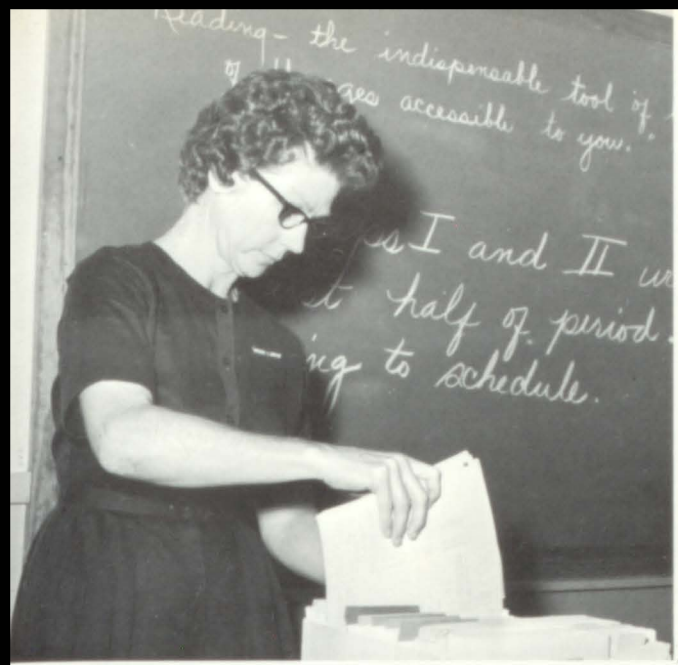 Reading - the indispensable tool of
of ages accessible to you.
I and II
half of period.
to schedule.